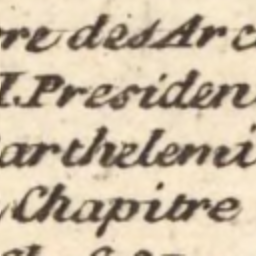 re des Arc
I. Presiden
arthelemi
Chapitre